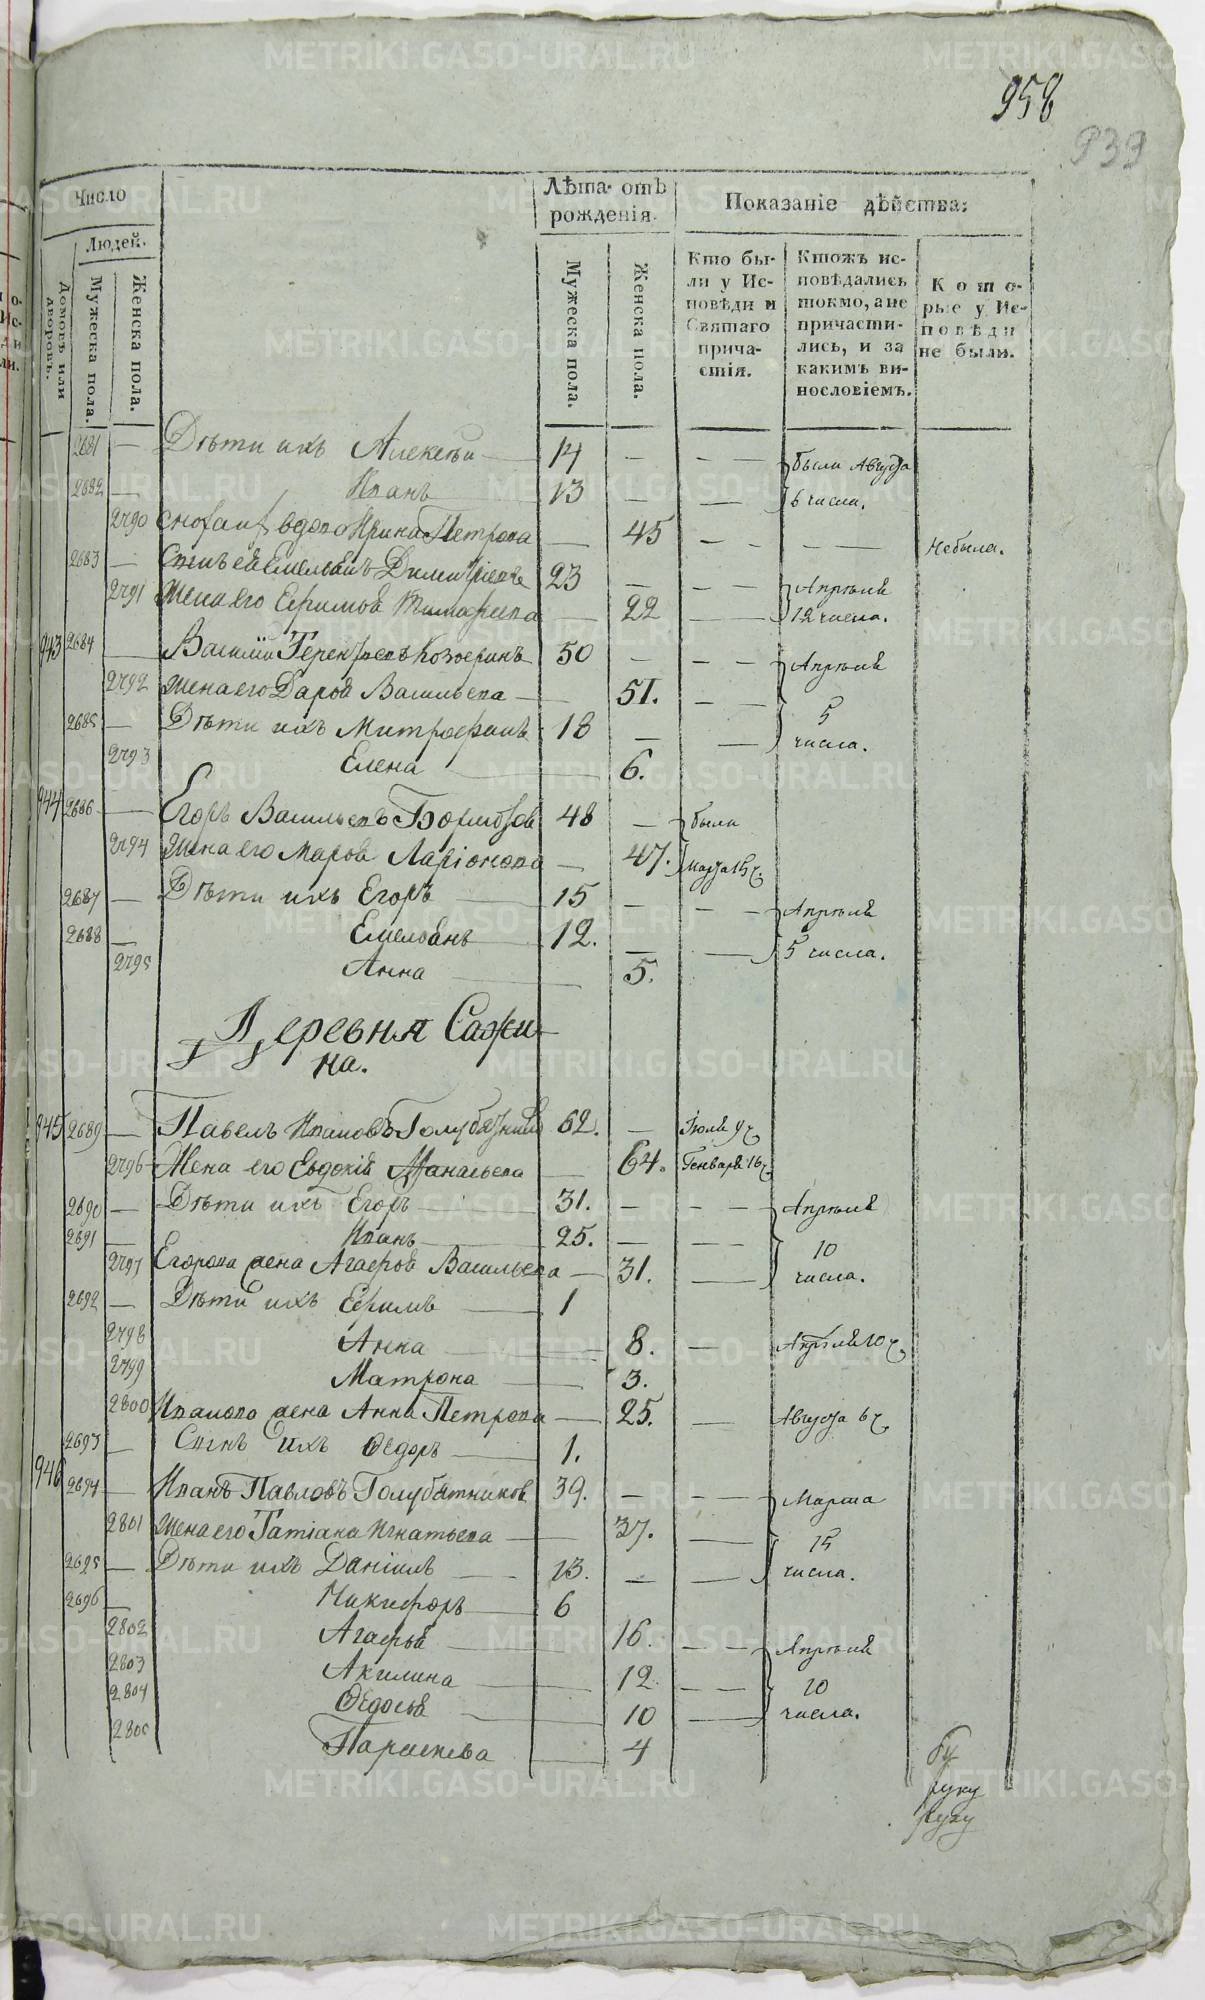 958
939
Число
Лѣта отъ рожденія.
Показаніе дѣйства:
Людей.
Домовъ или дворовъ.
Мужеска пола.
Женска пола.
Мужеска пола.
Женска пола.
Кто бы-
ли у Ис-
повѣди и
Святаго
прича-
стія.
Ктожъ ис-
повѣдались
токмо, а не
причасти-
лись, и за
какимъ ви-
нословіемъ.
Кото-
рые у Ис-
повѣди
не были.
2681 — Дѣти ихъ Алексѣй — 14 — — — были Августа
2682 — Иванъ 13 — — 6 числа.
2790 вдова Ирина Петрова — 45 — — — — небыла.
2683 — Сынъ ея Емельянъ Димитріевъ 23 — — Апрѣля
2791 Жена его Ефимья — 22 — — 12 числа.
943 2684 — Василій 50 — — — Апрѣля
2792 Жена его Дарья Васильева — 51. — — 5
2685 — Дѣти ихъ Митрофанъ 18 — — числа.
2793 Елена — 6.
944 2686 — Егоръ Васильевъ 48 — были
2794 Жена его Марья Ларіонова — 47. Марта 15 ч.
2687 — Дѣти ихъ Егоръ — 15 — — — Апрѣля
2688 — Емельянъ 12. — — 5 числа.
2795 Анна — 5.
Деревня Сажи-
на.
945 2689 — Павелъ Ивановъ Голубятников 62. — Іюля 9 ч
2796 Жена его Евдокія — 64. Генваря 16 ч.
2690 — Дѣти ихъ Егоръ — 31. — — — Апрѣля
2691 — Иванъ — 25. — — 10
2797 Егорова жена Агафья Васильева — 31. — числа.
2692 — Дѣти ихъ Ефимъ — 1
2798 Анна — 8. — Апрѣля 10 ч.
2799 Матрона — 3.
2800 Иванова жена Анна Петрова — 25. — Августа 6 ч.
2693 — Сынъ ихъ Ѳедоръ — 1.
946 2694 — Иванъ Павловъ Голубятников 39. — — Марта
2801 Жена его Татіана Игнатьева — 37. — 15
2695 — Дѣти ихъ Даніилъ — 13. — — числа.
2696 — Никифоръ — 6
2802 Агафья — 16. — — Апрѣля
2803 Акилина — 12 — — 10
2804 Ѳедосья — 10 — числа.
2805 Параскева — 4
руку
METRIKI.GASO-URAL.RU